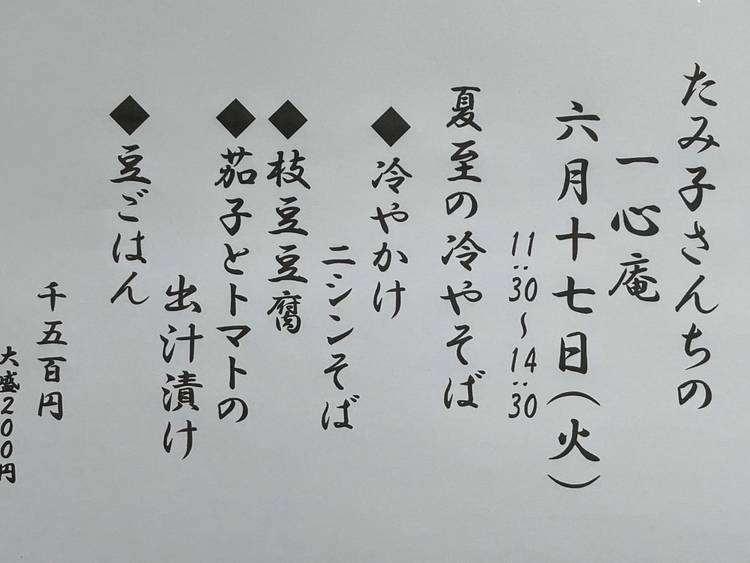 たみ子さんちの
一心庵
六月十七日(火)
11:30〜14:30
夏至の冷やそば
◆冷やかけ
ニシンそば
◆枝豆豆腐
◆茄子とトマトの
出汁漬け
◆豆ごはん
千五百円
大盛200円